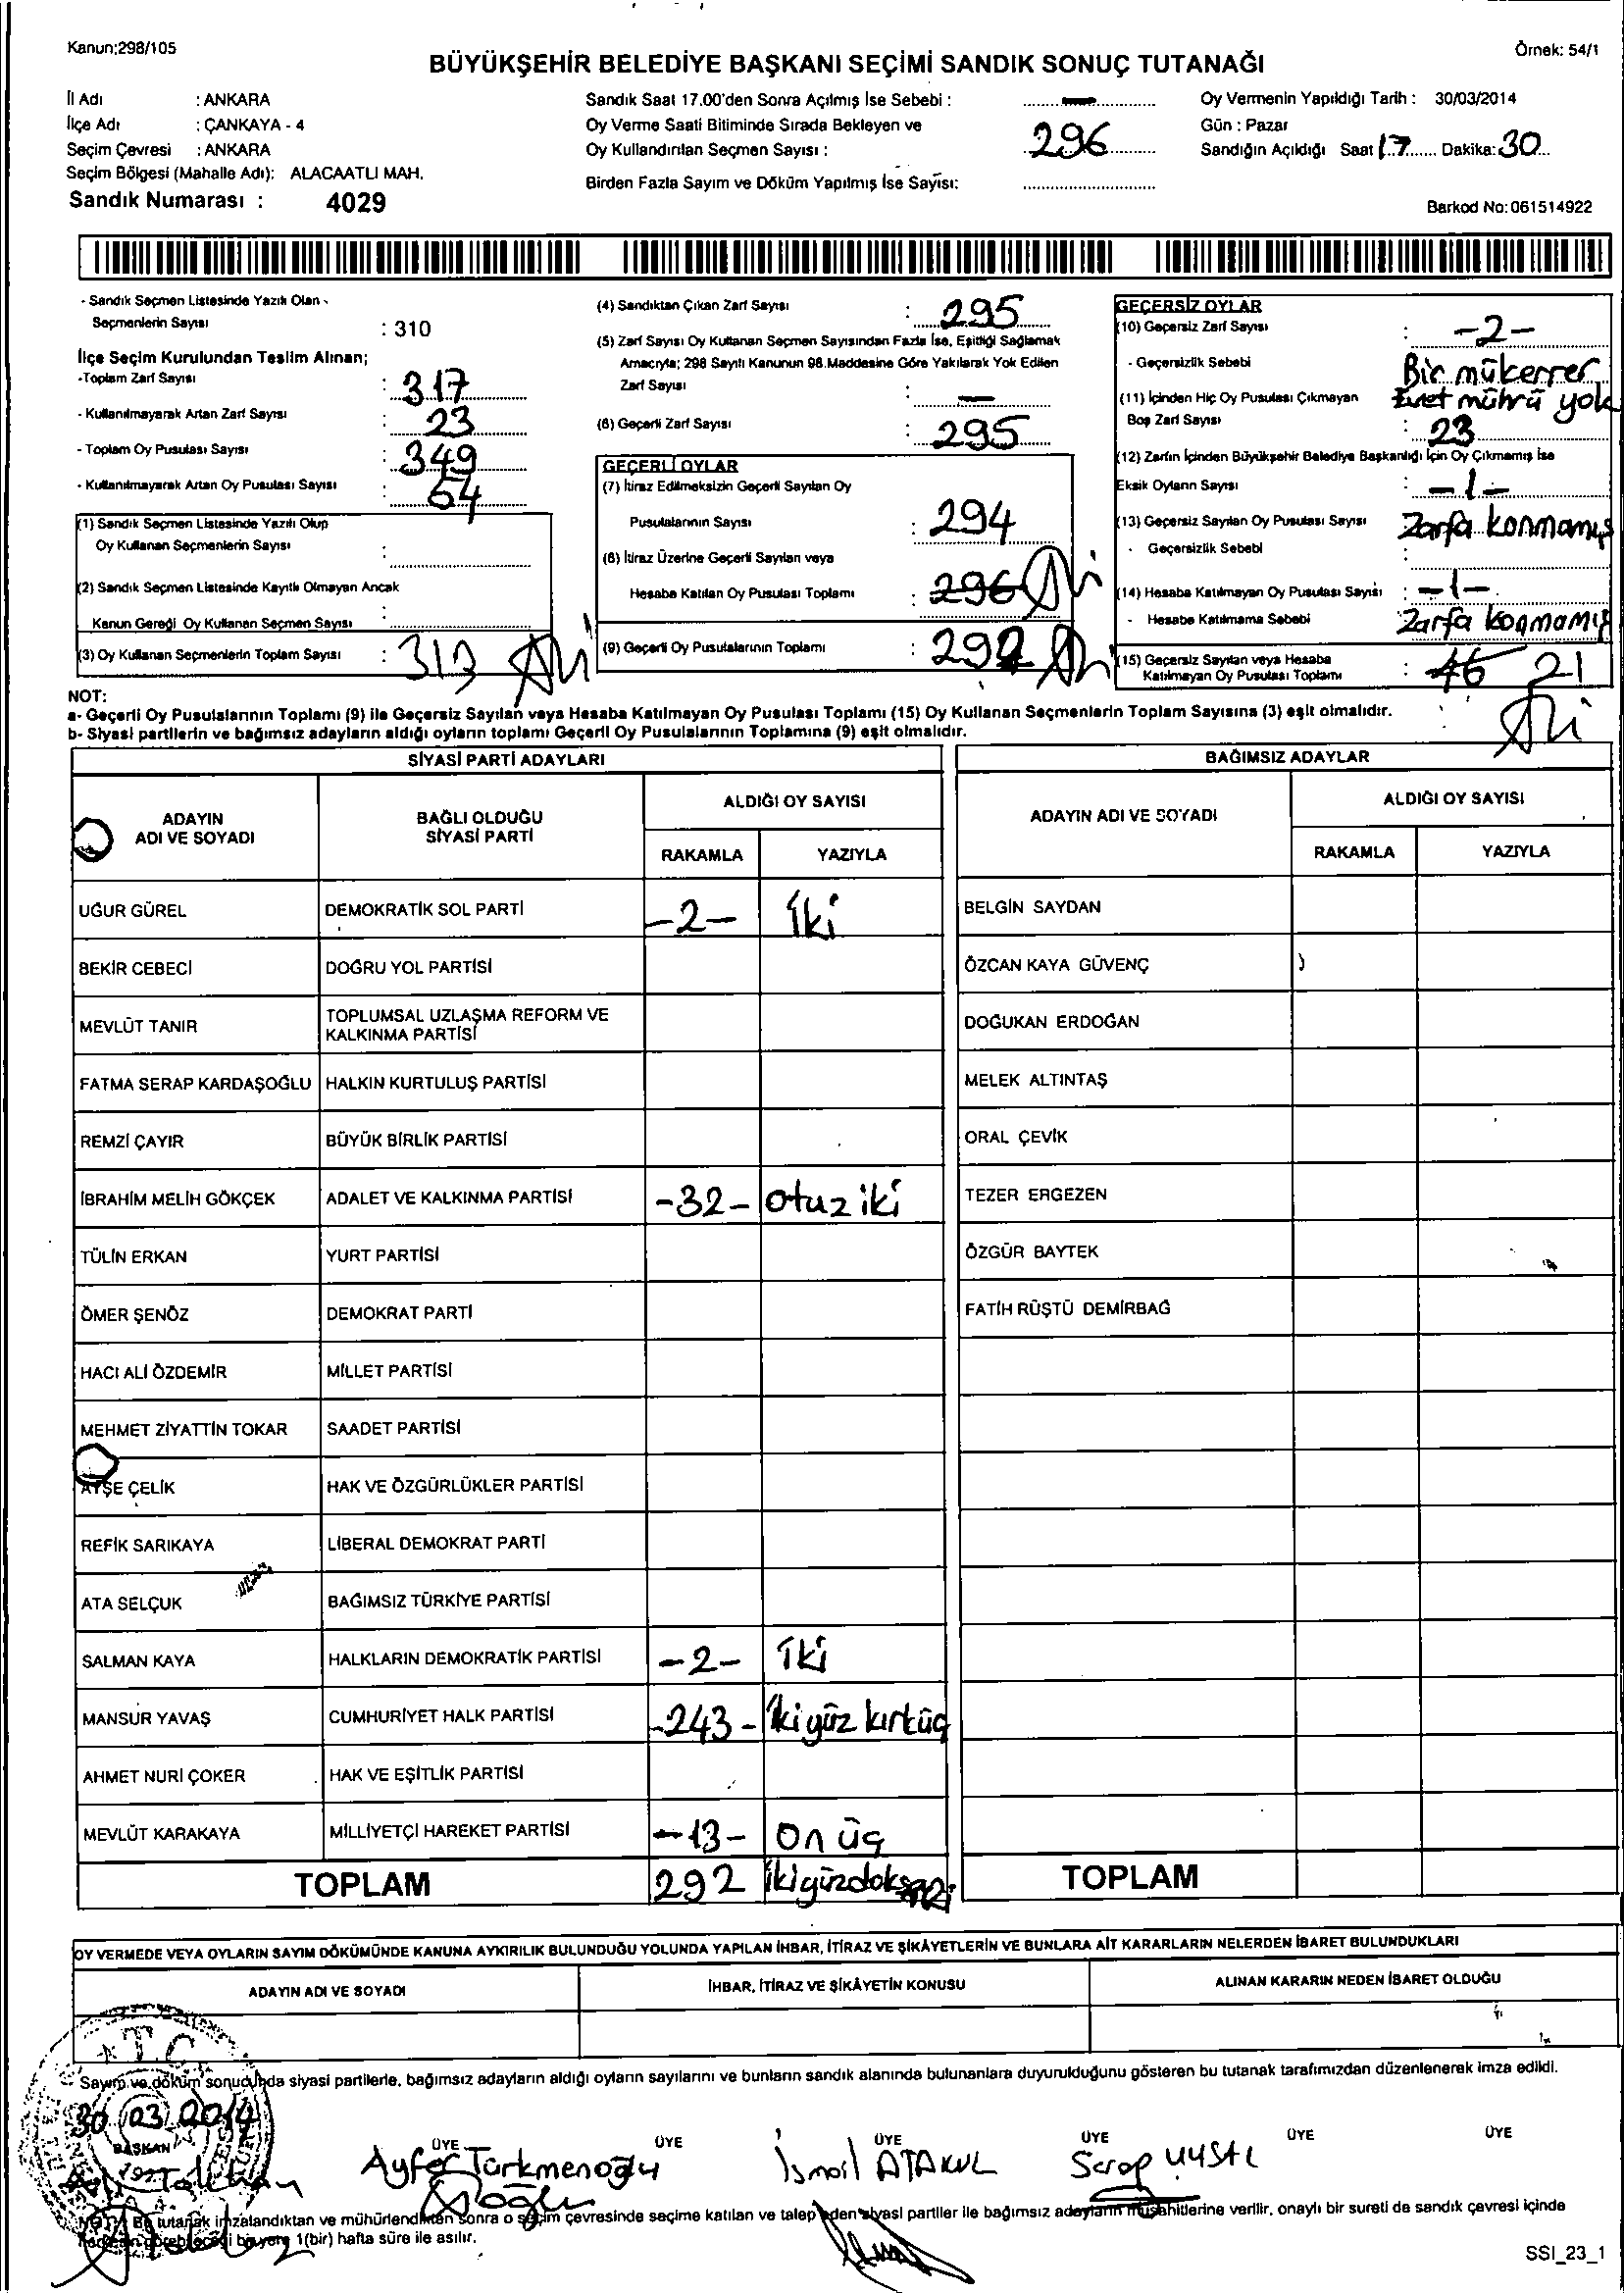 Kanun:298/105
Örnek: 54/1
BÜYÜKŞEHİR BELEDİYE BAŞKANI SEÇİMİ SANDIK SONUÇ TUTANAĞI
İl Adı : ANKARA
İlçe Adı : ÇANKAYA - 4
Seçim Çevresi : ANKARA
Seçim Bölgesi (Mahalle Adı): ALACAATLI MAH.
Sandık Numarası : 4029
Sandık Saat 17.00'den Sonra Açılmış İse Sebebi : —
Oy Verme Saati Bitiminde Sırada Bekleyen ve
Oy Kullandırılan Seçmen Sayısı : 296
Birden Fazla Sayım ve Döküm Yapılmış İse Sayısı:
Oy Vermenin Yapıldığı Tarih : 30/03/2014
Gün : Pazar
Sandığın Açıldığı Saat 17 Dakika: 30
Barkod No: 061514922
- Sandık Seçmen Listesinde Yazılı Olan -
Seçmenlerin Sayısı : 310
İlçe Seçim Kurulundan Teslim Alınan;
-Toplam Zarf Sayısı : 317
- Kullanılmayarak Artan Zarf Sayısı : 23
- Toplam Oy Pusulası Sayısı : 349
- Kullanılmayarak Artan Oy Pusulası Sayısı : 54
(1) Sandık Seçmen Listesinde Yazılı Olup
Oy Kullanan Seçmenlerin Sayısı :
(2) Sandık Seçmen Listesinde Kayıtlı Olmayan Ancak
Kanun Gereği Oy Kullanan Seçmen Sayısı :
(3) Oy Kullanan Seçmenlerin Toplam Sayısı : 313
(4) Sandıktan Çıkan Zarf Sayısı : 295
(5) Zarf Sayısı Oy Kullanan Seçmen Sayısından Fazla İse, Eşitliği Sağlamak
Amacıyla; 298 Sayılı Kanunun 98.Maddesine Göre Yakılarak Yok Edilen
Zarf Sayısı : —
(6) Geçerli Zarf Sayısı : 295
GEÇERLİ OYLAR
(7) İtiraz Edilmeksizin Geçerli Sayılan Oy
Pusulalarının Sayısı : 294
(8) İtiraz Üzerine Geçerli Sayılan veya
Hesaba Katılan Oy Pusulası Toplamı : 296
(9) Geçerli Oy Pusulalarının Toplamı : 292
GEÇERSİZ OYLAR
(10) Geçersiz Zarf Sayısı : -2-
- Geçersizlik Sebebi Bir mükerrer
Evet mührü yok
(11) İçinden Hiç Oy Pusulası Çıkmayan
Boş Zarf Sayısı : 23
(12) Zarfın İçinden Büyükşehir Belediye Başkanlığı İçin Oy Çıkmamış İse
Eksik Oyların Sayısı : -1-
(13) Geçersiz Sayılan Oy Pusulası Sayısı Zarfa konmamış
- Geçersizlik Sebebi :
(14) Hesaba Katılmayan Oy Pusulası Sayısı : -1-
- Hesaba Katılmama Sebebi Zarfa konmamış
(15) Geçersiz Sayılan veya Hesaba
Katılmayan Oy Pusulası Toplamı : 46 21
NOT:
a- Geçerli Oy Pusulalarının Toplamı (9) ile Geçersiz Sayılan veya Hesaba Katılmayan Oy Pusulası Toplamı (15) Oy Kullanan Seçmenlerin Toplam Sayısına (3) eşit olmalıdır.
b- Siyasi partilerin ve bağımsız adayların aldığı oyların toplamı Geçerli Oy Pusulalarının Toplamına (9) eşit olmalıdır.
SİYASİ PARTİ ADAYLARI
ADAYIN ADI VE SOYADI
BAĞLI OLDUĞU SİYASİ PARTİ
ALDIĞI OY SAYISI
RAKAMLA YAZIYLA
UĞUR GÜREL DEMOKRATİK SOL PARTİ -2- İki
BEKİR CEBECİ DOĞRU YOL PARTİSİ
MEVLÜT TANIR TOPLUMSAL UZLAŞMA REFORM VE KALKINMA PARTİSİ
FATMA SERAP KARDAŞOĞLU HALKIN KURTULUŞ PARTİSİ
REMZİ ÇAYIR BÜYÜK BİRLİK PARTİSİ
İBRAHİM MELİH GÖKÇEK ADALET VE KALKINMA PARTİSİ -32- otuz iki
TÜLİN ERKAN YURT PARTİSİ
ÖMER ŞENÖZ DEMOKRAT PARTİ
HACI ALİ ÖZDEMİR MİLLET PARTİSİ
MEHMET ZİYATTİN TOKAR SAADET PARTİSİ
AYŞE ÇELİK HAK VE ÖZGÜRLÜKLER PARTİSİ
REFİK SARIKAYA LİBERAL DEMOKRAT PARTİ
ATA SELÇUK BAĞIMSIZ TÜRKİYE PARTİSİ
SALMAN KAYA HALKLARIN DEMOKRATİK PARTİSİ -2- İki
MANSUR YAVAŞ CUMHURİYET HALK PARTİSİ -243- İkiyüz kırküç
AHMET NURİ ÇOKER HAK VE EŞİTLİK PARTİSİ
MEVLÜT KARAKAYA MİLLİYETÇİ HAREKET PARTİSİ -13- On üç
TOPLAM 292
BAĞIMSIZ ADAYLAR
ADAYIN ADI VE SOYADI
ALDIĞI OY SAYISI
RAKAMLA YAZIYLA
BELGİN SAYDAN
ÖZCAN KAYA GÜVENÇ
DOĞUKAN ERDOĞAN
MELEK ALTINTAŞ
ORAL ÇEVİK
TEZER ERGEZEN
ÖZGÜR BAYTEK
FATİH RÜŞTÜ DEMİRBAĞ
TOPLAM
OY VERMEDE VEYA OYLARIN SAYIM DÖKÜMÜNDE KANUNA AYKIRILIK BULUNDUĞU YOLUNDA YAPILAN İHBAR, İTİRAZ VE ŞİKÂYETLERİN VE BUNLARA AİT KARARLARIN NELERDEN İBARET BULUNDUKLARI
ADAYIN ADI VE SOYADI
İHBAR, İTİRAZ VE ŞİKÂYETİN KONUSU
ALINAN KARARIN NEDEN İBARET OLDUĞU
T.C.
Sayım ve döküm sonucunda siyasi partilerle, bağımsız adayların aldığı oyların sayılarını ve bunların sandık alanında bulunanlara duyurulduğunu gösteren bu tutanak tarafımızdan düzenlenerek imza edildi.
30/03/2014
BAŞKAN ÜYE ÜYE ÜYE ÜYE ÜYE ÜYE
Ayfer Türkmenoğlu İsmail ATAKUL Serap UYSAL
NOT: Bu tutanak imzalandıktan ve mühürlendikten sonra o seçim çevresinde seçime katılan ve talep eden siyasi partiler ile bağımsız adayların müşahitlerine verilir, onaylı bir sureti de sandık çevresi içinde
herkesin görebileceği bir yere 1(bir) hafta süre ile asılır.
SSI_23_1